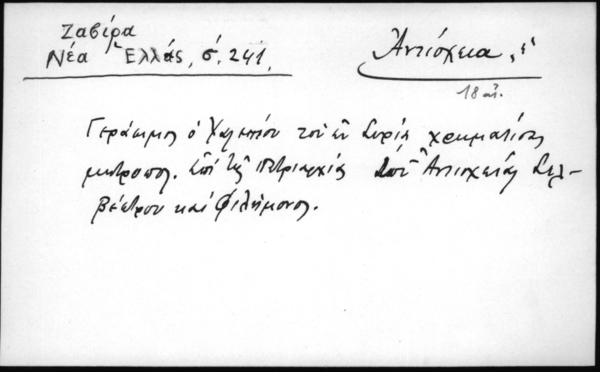 Ζαβίρα
Νέα Ἑλλάς, σ. 241.
Ἀντιόχεια
18 αἰ.
Γεράσιμος ὁ Χαλεπίου τοῦ ἐν Συρίᾳ χρηματίσας
μητροπολ. ἐπὶ τῆς πατριαρχίας τῶν Ἀντιοχείας Σιλ-
βέστρου καὶ Φιλήμονος.